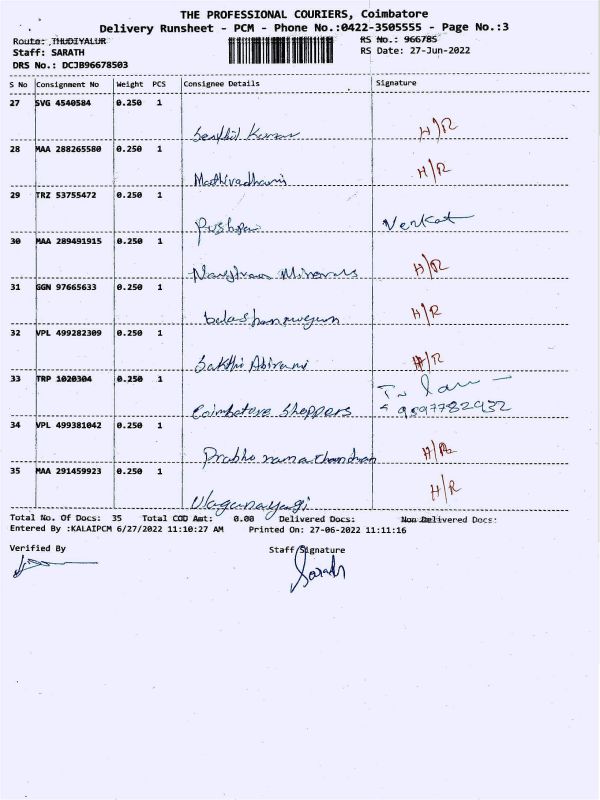 THE PROFESSIONAL COURIERS, Coimbatore
Delivery Runsheet - PCM - Phone No.:0422-3505555 - Page No.:3
Route: THUDIYALUR
RS No.: 966785
Staff: SARATH
RS Date: 27-Jun-2022
DRS No.: DCJB96678503
S No Consignment No Weight PCS Consignee Details Signature
27 SVG 4540584 0.250 1
Senthil Kumar H/R
28 MAA 288265580 0.250 1
Mathivadhani H/R
29 TRZ 53755472 0.250 1
Pushpa Venkat
30 MAA 289491915 0.250 1
Minerals H/R
31 GGN 97665633 0.250 1
balashanmugam H/R
32 VPL 499282309 0.250 1
Sakthi Abirami H/R
33 TRP 1020304 0.250 1
Coimbatore Shoppers 9597782932
34 VPL 499381042 0.250 1
Prabhu ramachandran H/R
35 MAA 291459923 0.250 1
Ulaganayagi H/R
Total No. Of Docs: 35 Total COD Amt: 0.00 Delivered Docs: Non Delivered Docs:
Entered By :KALAIPCM 6/27/2022 11:10:27 AM Printed On: 27-06-2022 11:11:16
Verified By Staff Signature
Sarath